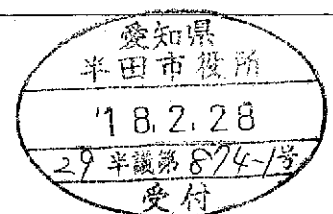 愛知県
半田市役所
'18.2.28
29半議第874-1号
受付